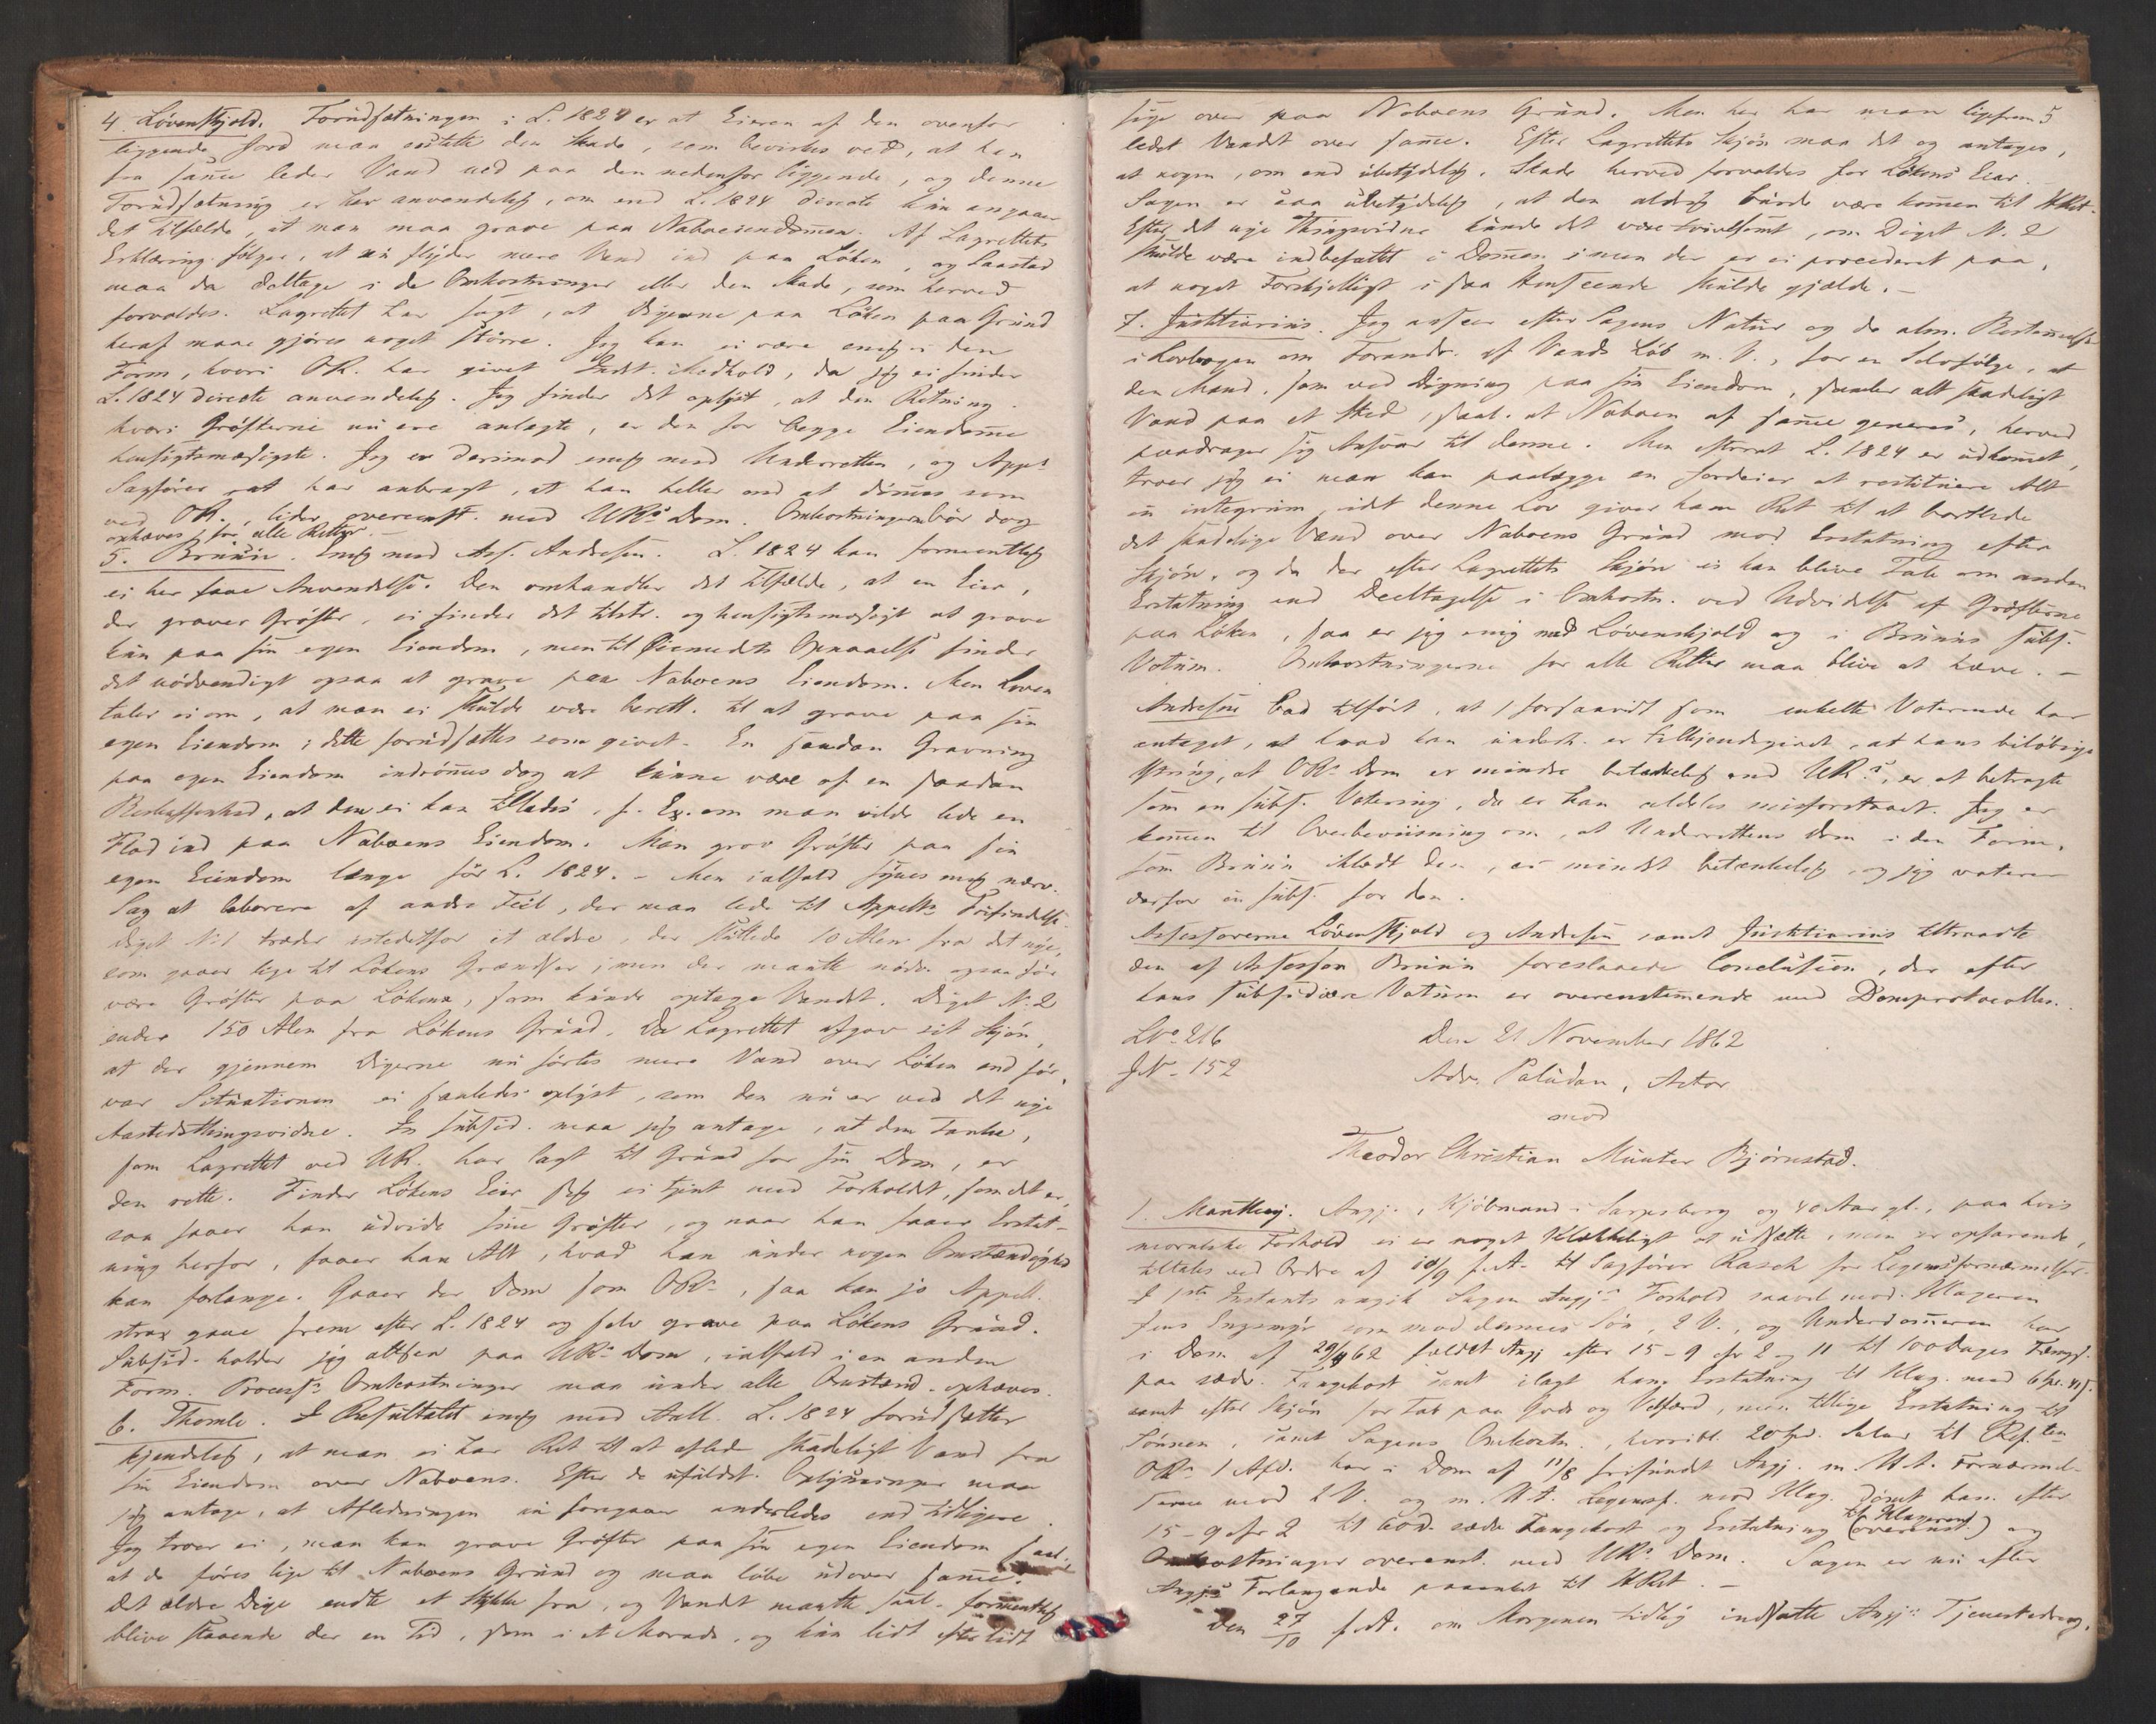 4. Løvenskjold. Forudsætningen i L. 1824 er at Eieren af den ovenfor
liggende Jord maa erstatte den Skade, som bevirkes ved, at han
fra samme leder Vand ned paa den nedenfor liggende, og denne
Forudsætning er her anvendelig, om end L. 1824 directe kun angaaer
det Tilfælde, at man maa grave paa Naboeiendommen. Af Lagrettets
Erklæring følger, at nu flyder mere Vand ind paa Løken, og Saastad
maa da deltage i de Omkostninger eller den Skade, som herved
forvoldes. Lagrettet har sagt, at Digerne paa Løken paa Grund
heraf maae gjøres noget større. Jeg kan ei være enig i den
Form, hvori OR. har givet Indst. Medhold, da jeg ei finder
L. 1824 directe anvendelig. Jeg finder det oplyst, at den Retning
hvori Grøfterne nu ere anlagte, er den for begge Eiendomme
hensigtsmæsigste. Jeg er derimod enig med Underretten, og Appts
Sagfører at har anbragt, at han heller end at dømmes som
ved OR., lider overenst. med URs Dom. Omkostningerne bør dog
ophæves for alle Retter. –
5. Brunn. Enig med Ass. Andresen. L. 1824 kan formentlig
ei her faae Anvendelse. Den omhandler det Tilfælde, at en Eier,
der graver Grøfter, ei finder det tilstr. og hensigtsmæsigt at grave
kun paa sin egen Eiendom, men til Øiemedets Opnaaelse finder
det nødvendigt ogsaa at grave paa Naboens Eiendom. Men Loven
taler ei om, at man ei skulde være berett. til at grave paa sin
egen Eiendom; dette forudsættes som givet. En saadan Gravning
paa egen Eiendom indrømmes dog at kunne være af en saadan
Beskaffenhed, at den ei kan tillades, f. Ex. om man vilde lede en
Flod ind paa Naboens Eiendom. Man grov Grøfter paa sin
egen Eiendom længe før L. 1824. – Men ialfald synes mig nærv.
Sag at laborere af andre Feil, der maa lede til Appelts Frifindelse.
Diget N. 1 træder istedetfor et ældre, der sluttede 10 Alen fra det nye,
som gaaer lige til Løkens Grændser; men der maatte nødv. ogsaa før
være Grøfter paa Løkens, som kunde optage Vandet. Diget N. 2
ender 150 Alen fra Løkens Grund. Da Lagrettet afgav sit Skjøn,
at der gjennem Digerne nu førtes mere Vand over Løken end før,
var Situationen ei saaledes oplyst, som den nu er ved det nye
Aastedsthingsvidne. In subsid. maa jeg antage, at den Tanke,
som Lagrettet ved UR. har lagt til Grund for sin Dom, er
den rette. Finder Løkens Eier sig ei tjent med Forholdet, som det er,
saa faaer han udvide sine Grøfter, og naar han faaer Erstat-
ning herfor, faaer han Alt, hvad han under nogen Omstændighed
kan forlange. Gaaer der Dom som ORs, saa kan jo Appell.
strax gaae frem efter L. 1824 og selv grave paa Løkens Grund.
Subsid. holder jeg altsaa paa URs Dom, ialfald i en anden
Form. Processs Omkostninger maa under alle Omstænd. ophæves.
6. Thomle. I Resultatet enig med Anll. L. 1824 forudsætter
kjendelig, at man ei har Ret til at aflede skadeligt Vand fra
sin Eiendom over Naboens. Efter de ufuldst. Oplysninger maa
jeg antage, at Afledningen nu foregaaer anderledes end tidligere.
Jeg troer ei, man kan grave Grøfter paa sin egen Eiendom saal.
at de føres lige til Naboens Grund og maa løbe udover samme.
Det ældre Dige endte et Stykke fra, og Vandet maatte saal. formentlig
blive staaende der en Tid, som i et Morads, og kun lidt efter lidt
sige over paa Naboens Grund. Men her har man ligefrem 5
ledet Vandet over samme. Efter Lagrettets Skjøn maa det og antages,
at nogen, om end ubetydelig, Skade herved forvoldes for Løkens Eier.
Sagen er saa ubetydelig, at den aldrig burde være kommen til HRet.
Efter det nye Thingsvidne kunde det være tvivlsomt, om Diget N. 2
skulde være indbefattet i Dommen; men der er ei procederet paa,
at noget Forskjelligt i saa Henseende skulde gjælde. –
7. Justitiarius. Jeg anseer efter Sagens Natur og de alm. Bestemmelser
i Lovbogen om Forandr. af Vands Løb m. V., for en Selvfølge, at
den Mand, som ved Digning paa sin Eiendom, samler alt skadeligt
Vand paa et Sted, saal. at Naboen af samme generes, herved
paadrager sig Ansvar til denne. Men efterat L. 1824 er udkommet,
troer jeg ei man kan paalægge en Jordeier at restituere Alt
in integrum, idet denne Lov giver ham Ret til at bortlede
det skadelige Vand over Naboens Grund mod Erstatning efter
Skjøn, og da der efter Lagrettets Skjøn ei kan blive Tale om anden
Erstatning end Deeltagelse i Omkostn. ved Udvidelse af Grøfterne
paa Løken, saa er jeg enig med Løvenskjold og i Brunns subs.
Votum. Omkostningerne for alle Retter maa blive at hæve. –
Andresen bad tilført, at forsaavidt som enkelte Voterende har
antaget, at hvad han under. er tilkjendegivet, at hans biløbige
Ytring, at ORs Dom er mindre betænkelig end URs, er at betragte
som en subs. Votering, da er han aldeles misforstaaet. Jeg er
kommen til Overbeviisning om, at Underrettens Dom i den Form,
som Brunn iklædt den, er mindst betænkelig, og jeg voterer
derfor in subs. for den.
Assessorerne Løvenskjold og Andresen samt Justitiarius tiltraadte
den af Assessor Brunn foreslaaede Conclusion, der efter
hans subsidiære Votum er overenstemmende med Domsprotocollen.
LNo 216 Den 21 November 1862
JN. 152 Adv. Paludan, Actor
mod
Theodor Christian Münter Bjørnstad.
1. Manthey. Angj., Kjøbmand i Sarpsborg og 40 Aar gl., paa hvis
moralske Forhold ei er noget Klækkeligt at udsætte, men er opfarende,
tiltales ved Ordre af 10/9 f.A. til Sagfører Rasch for Legemsfornærmelser.
I 1ste Instants angik Sagen Angjs Forhold saavel mod Klageren
Jens Engsmyr som mod dennes Søn, 2 V., og Underdommeren har
i Dom af 29/4 62 fældet Angj efter 15 – 9 cfr 2 og 11 til 100 Dages Fængs.
paa sædv. Fangekost samt ilagt ham Erstatning til Klag. med 6 Spd. 41 s.
samt efter Skjøn for Tab paa Gods og Velfærd, men tillige Erstatning til
Sønnen, samt Sagens Omkostn., hvoribl. 20 Spd. Salær til Ref.ten
ORs 1 Afd. har i Dom af 11/8 frifundet Angj. m. H. t. Fornærmel-
serne mod 2 V. og m. H. t. Legemsf. mod Klag. dømt ham efter
15 – 9 cfr 2 til 60 D. sædv. Fangekost og Erstatning til Klageren (overenst.) og
Omkostninger overenst. med URs Dom. Sagen er nu efter
Angjs Forlangende paaanket til HRet. –
Den 27/10 f.A. om Morgenen tidlig indsatte Angjs Tjenestedreng,